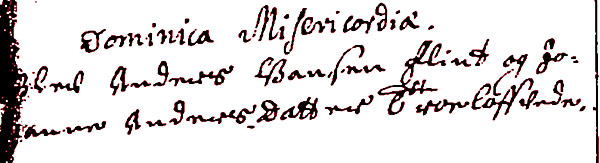 Dominica Misericordiæ.
Blev Anders Hansen Flint og Jo-
anne Anders Datter Troelofvede.